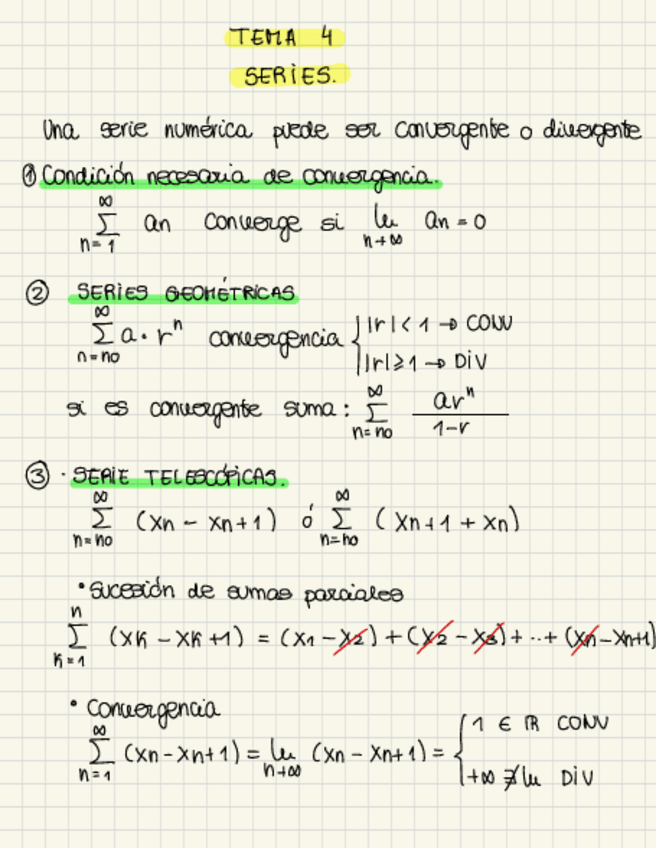 TEMA 4
SERIES.
Una serie numérica puede ser convergente o divergente
① Condición necesaria de convergencia.
∞ ∑ n=1 an converge si lim n→∞ an = 0
② SERIES GEOMÉTRICAS
∞ ∑ n=no a · rⁿ convergencia { |r| < 1 → CONV
|r| ≥ 1 → DIV
si es convergente suma: ∞ ∑ n=no arⁿ / 1-r
③ · SERIE TELESCÓPICAS.
∞ ∑ n=no (xn - xn+1) ó ∞ ∑ n=no (xn+1 + xn)
• Sucesión de sumas parciales
n ∑ k=1 (xk - xk+1) = (x1 - x2) + (x2 - x3) + ··+ (xn - xn+1)
• Convergencia
∞ ∑ n=1 (xn - xn+1) = lim n→∞ (xn - xn+1) = { 1 ∈ ℝ CONV
+∞ ∄ lim DIV